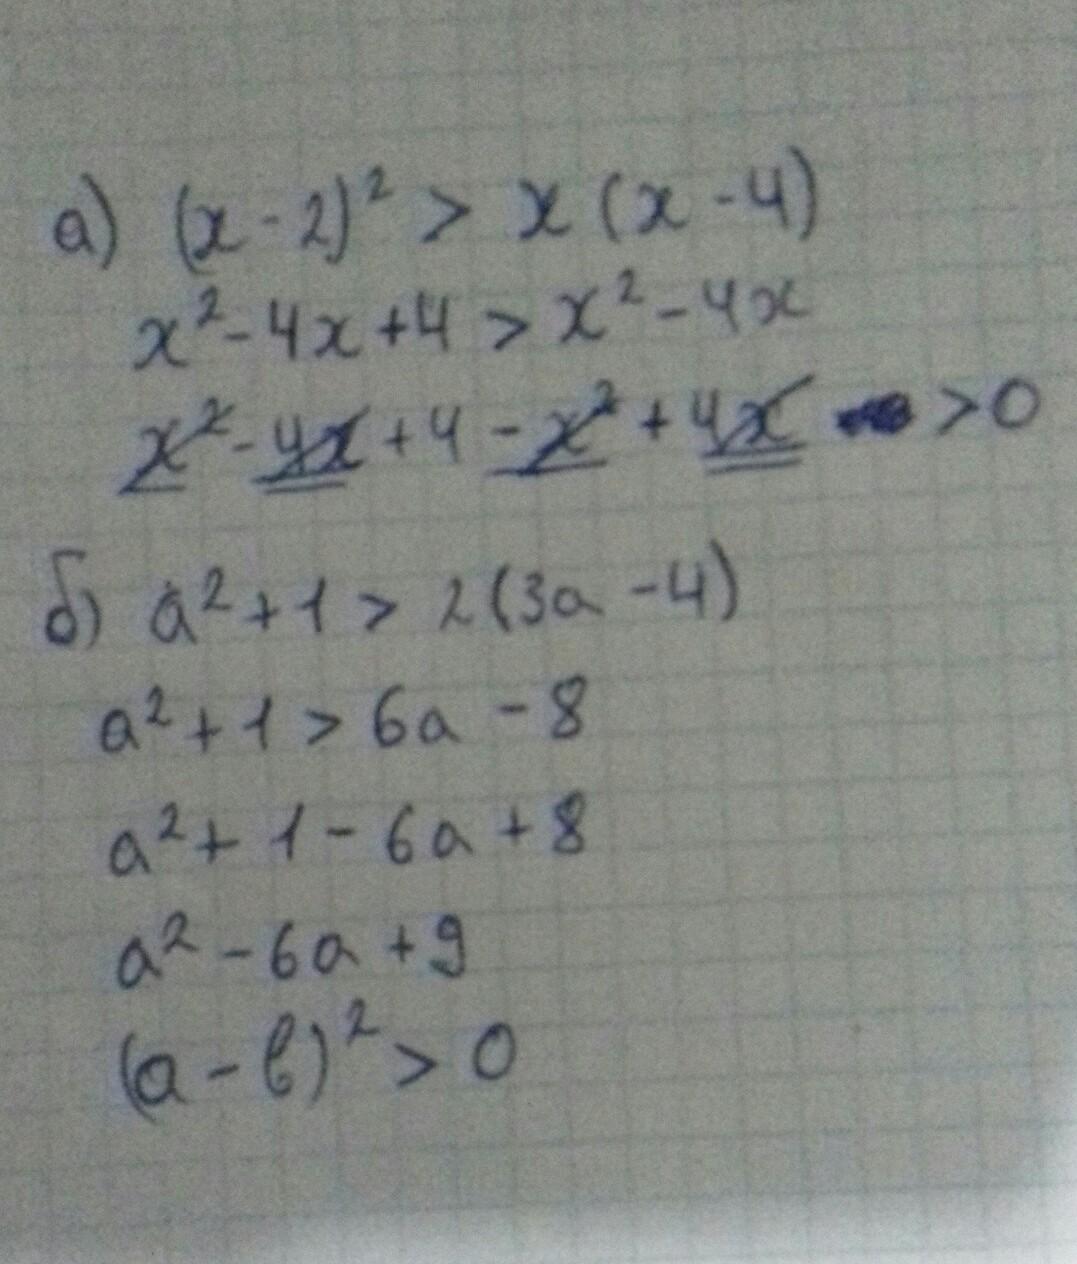 а) (x - 2)² > x (x - 4)
x² - 4x + 4 > x² - 4x
x² - 4x + 4 - x² + 4x > 0
б) a² + 1 > 2 (3a - 4)
a² + 1 > 6a - 8
a² + 1 - 6a + 8
a² - 6a + 9
(a - b)² > 0